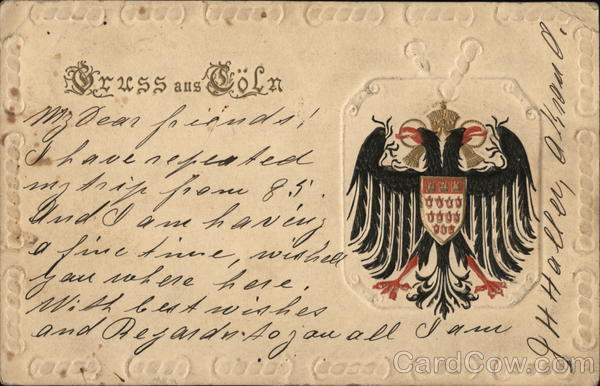 Gruss aus Cöln
My Dear friends!
I have repeated
my trip from 85.
And I am having
a fine time, wished
you where here.
With best wishes
and Regards to you all I am
J H Halley Akron O.
CardCow.com